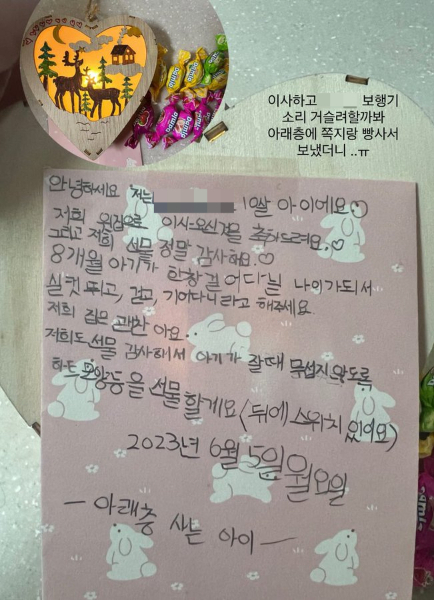 이사하고 보행기
소리 거슬려할까봐
아래층에 쪽지랑 빵사서
보냈더니 ..ㅠ
안녕하세요 저는 10살 아이에요
저희 윗집으로 이사오신걸 축하드려요♡
그리고 저희 선물 정말 감사해요♡
8개월 아기가 한창 걸어다닐 나이가되서
실컷 뛰고, 걷고, 기어다니라고 해주세요.
저희 집은 괜찬아요
저희도 선물 감사해서 아기가 잘때 무섭지않도록
하트모양등을 선물할게요(뒤에 스위치 있어요)
2023년 6월 5일 월요일
- 아래층 사는 아이 -